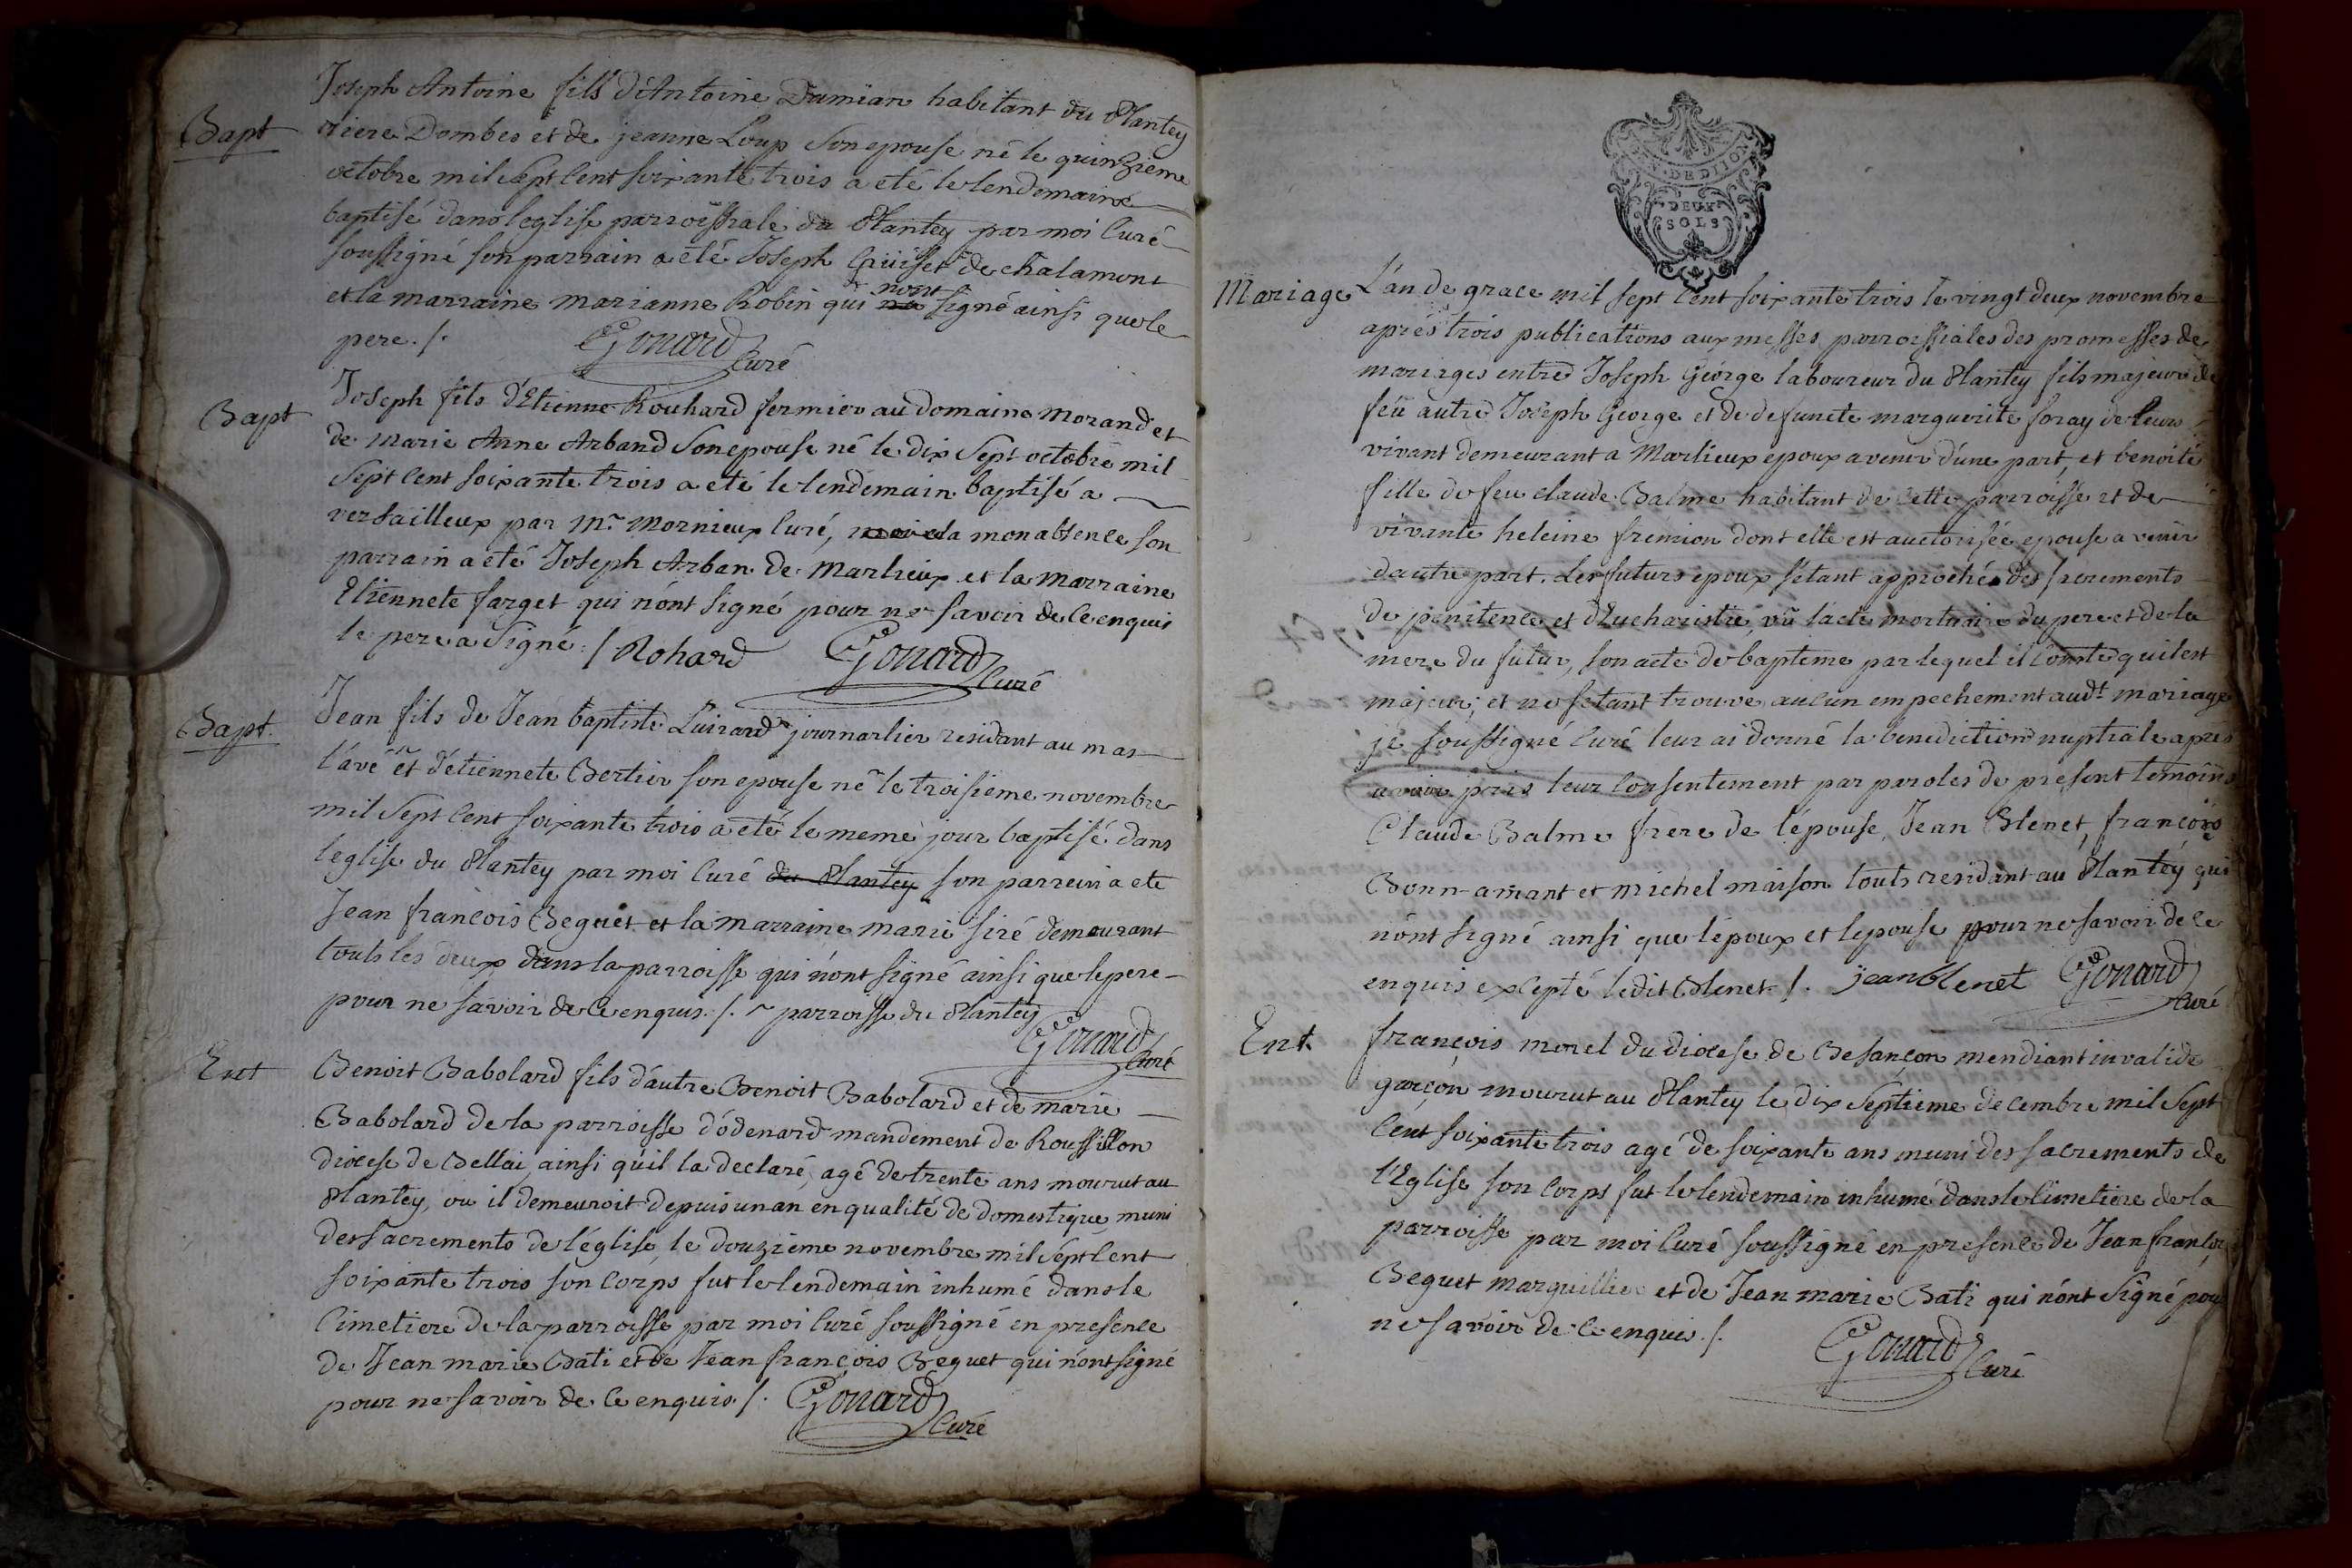 Joseph Antoine fils d'Antoine Damian habitant du Plantey
Bapt riere Dombes et de jeanne Loup Son epouse né le quinzieme
octobre mil sept cent soixante trois a eté le lendemain
baptisé dans leglise parroissiale du Plantey par moi Curé
soussigné son parrain a eté Joseph de chalamont
et la marraine marianne Robin qui nont signé ainsi que le
pere ./. Gonard Curé
Bapt Joseph fils d'Etienne Rouhard fermier au domaine Morand et
de Marie Anne Arband Son epouse né le dix Sept octobre mil
Sept Cent soixante trois a eté le lendemain baptisé a
versailleux par Mr Mornieux Curé, a mon absence son
parrain a eté Joseph Arban de Marlieux et la Marraine
Etiennete farget qui n'ont signé pour ne savoir de ce enquis
le pere a Signé ./ Rohard Gonard Curé
Bapt. Jean fils de Jean baptiste Luirard journarlier residant au mas
l'avé et d'etiennete Bertier son epouse né le troisieme novembre
mil Sept Cent soixante trois a eté le meme jour baptisé dans
l'eglise du Plantey par moi Curé du Plantey son parrein a ete
Jean francois Beguet et la marraine marie siré demeurant
touts les deux dans la parroisse qui n'ont signé ainsi que le pere
pour ne savoir de ce enquis ./. parroisse du Plantey
Gonard Curé
Ent Benoit Babolard fils d'autre Benoit Babolard et de marie
Babolard de la parroisse d'odenard mandement de Roussillon
diocese de Bellai ainsi qu'il la declaré, agé de trente ans mourut au
Plantey, ou il demeuroit depuis un an en qualité de domestique, muni
des sacrements de l'église, le douzieme novembre mil Sept Cent
soixante trois son Corps fut le lendemain inhumé dans le
Cimetiere de la parroisse par moi Curé soussigné en presence
de Jean marie Bati et de Jean francois Beguet qui n'ont signé
pour ne savoir de ce enquis ./. Gonard Curé
GEN. DE DIJON
DEUX
SOLS
Mariage L'an de grace mil sept Cent soixante trois le vingt deux novembre
aprés trois publications aux messes parroissiales des promesses de
mariages entre Joseph George laboureur du Plantey fils majeur de
feü autre Joseph George et de defuncte marguerite foray de leurs
vivant demeurant a Marlieux epoux avenir d'une part, et benoite
fille de feu claude Balme habitant de Cette parroisse et de
vivante heleine fremion dont elle est auctorisée epouse a venir
dautre part. Les futurs epoux s'etant approchés des sacrements
de penitence et d'Eucharistie, vü l'acte mortuaire du pere et de la
mere du futur, son acte de bapteme par lequel il Conste qu'il est
majeur; et ne s'etant trouvé aucun empechement audt. mariage
je soussigné Curé leur ai donné la benediction nuptiale apres
avoir pris leur Consentement par paroles de present temoins
Claude Balme frere de l'epouse, Jean Blenet, françois
Bonn-amant et michel maison touts residant au Plantey qui
n'ont signé ainsi que l'epoux et lepouse pour ne savoir de ce
enquis excepté ledit Blenet ./. jean blenet Gonard Curé
Ent. françois morel du diocese de Besançon mendiant invalide
garçon mourut au Plantey le dix Septieme decembre mil Sept
Cent soixante trois agé de soixante ans muni des sacrements de
l'Eglise son Corps fut le lendemain inhumé dans le Cimetiere de la
parroisse par moi Curé soussigné en presence de Jean francois
Beguet marguillier et de Jean marie Bati qui n'ont Signé pour
ne savoir de ce enquis ./. Gonard Curé